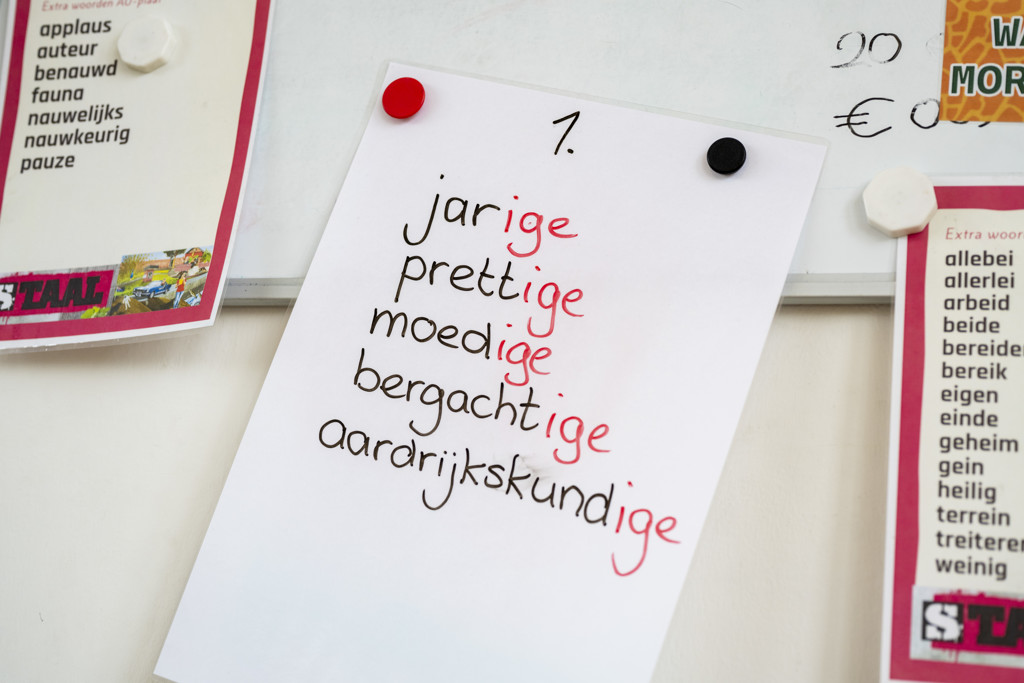 Extra woorden AU-plaat
applaus
auteur
benauwd
fauna
nauwelijks
nauwkeurig
pauze
STAAL
1.
jarige
prettige
moedige
bergachtige
aardrijkskundige
20
€
MOR
Extra woor
allebei
allerlei
arbeid
beide
bereide
bereik
eigen
einde
geheim
gein
heilig
terrein
treiteren
weinig
STA